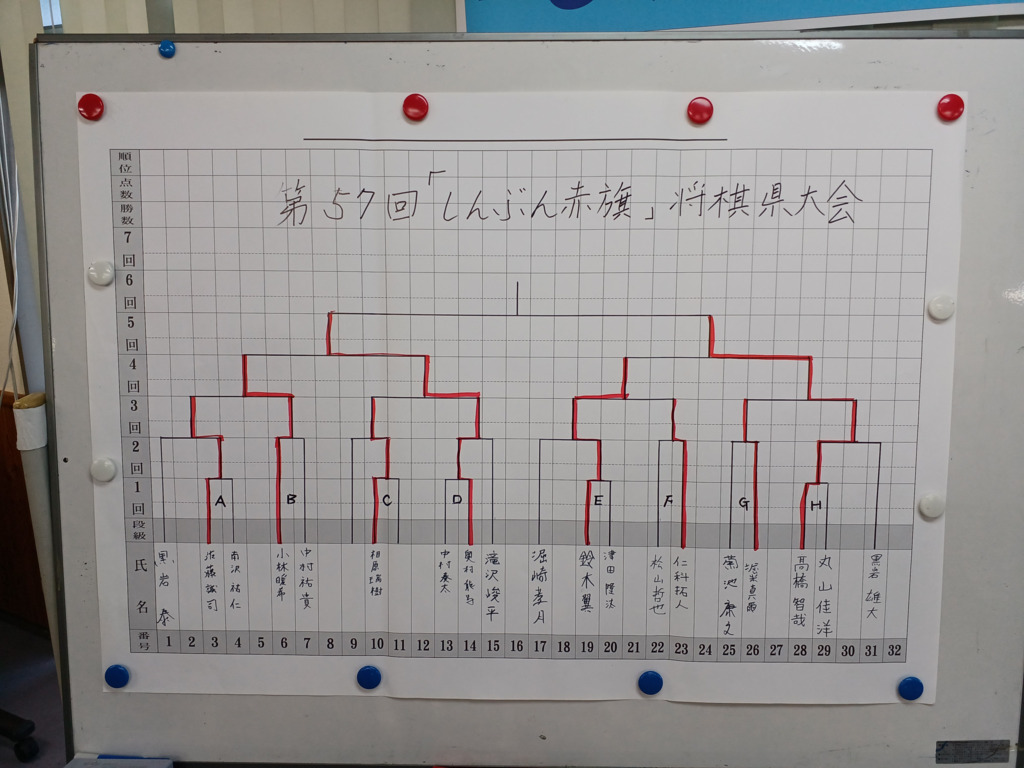 第57回「しんぶん赤旗」将棋県大会
順位
点数
勝数
7回
6回
5回
4回
3回
2回
1回
A B C D E F G H
段級
氏名
黒岩 泰
佐藤誠司
南沢祐仁
小林暖幸
中村祐貴
相原瑞樹
中村奏太
奥村
滝沢峻平
堀崎孝月
鈴木翼
津田隆法
松山哲也
仁科拓人
菊池康文
高橋智哉
丸山佳洋
黒岩雄大
番号 1 2 3 4 5 6 7 8 9 10 11 12 13 14 15 16 17 18 19 20 21 22 23 24 25 26 27 28 29 30 31 32